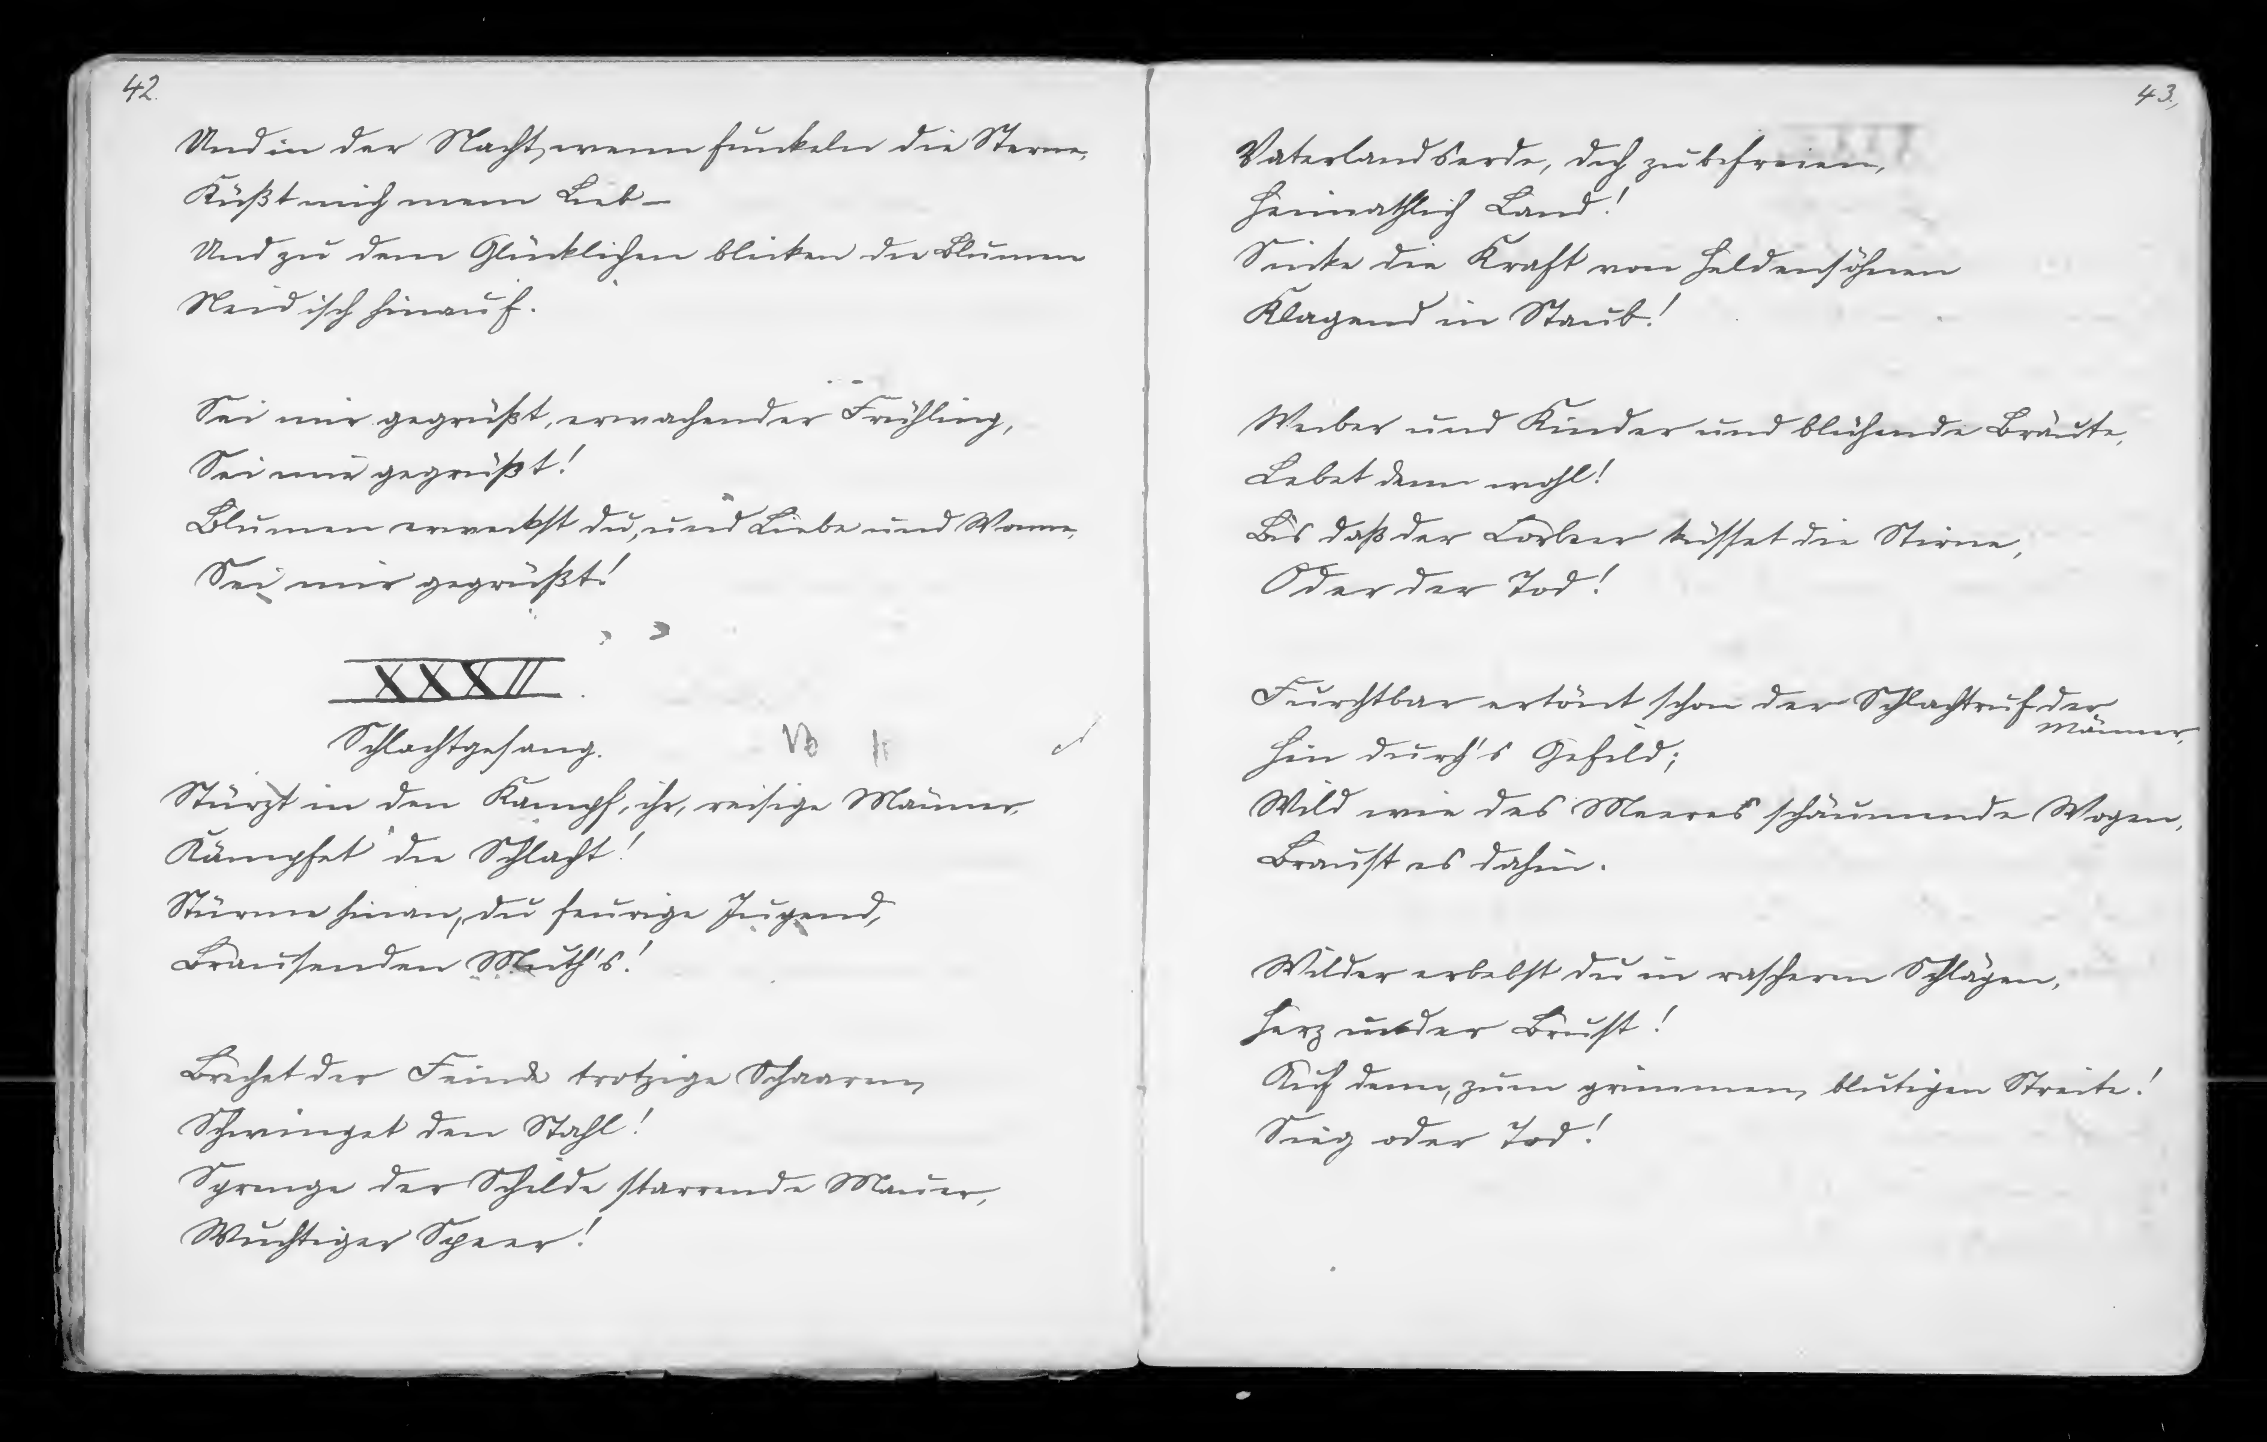 42.
Und in der Nacht, wenn funkeln die Sterne,
Küßt mich mein Lieb –
Und zu dem Glücklichen blicken die Blumen
Neidisch hinauf.
Sei mir gegrüßt, erwachender Frühling,
Sei mir gegrüßt!
Blumen erweckst du, und Liebe und Wonne,
Sei mir gegrüßt!
XXXII.
Schlachtgesang.
Stürzt in den Kampf, ihr, reisige Männer,
Kämpfet die Schlacht!
Stürme hinan, du feurige Jugend,
Brausenden Muth's!
Brechet der Feinde trotzige Schaaren,
Schwinget den Stahl!
Sprenge der Schilde starrende Mauer,
Wuchtiger Speer!
43.
Vaterlandserde, dich zu befreien,
Heimathlich Land!
Sinke die Kraft von Heldensöhnen
Klagend in Staub!
Weiber und Kinder und blühende Bräute,
Lebet denn wohl!
Bis daß der Lorbeer küsset die Stirne,
Oder der Tod!
Furchtbar ertönt schon der Schlachtruf der
Männer,
Hin durch's Gefild;
Wild wie des Meeres schäumende Wogen,
Braust es dahin.
Wilder erbebst du in rascherm Schlägen,
Herz in der Brust!
Auf denn, zum grimmen, blutigen Streite!
Sieg oder Tod!